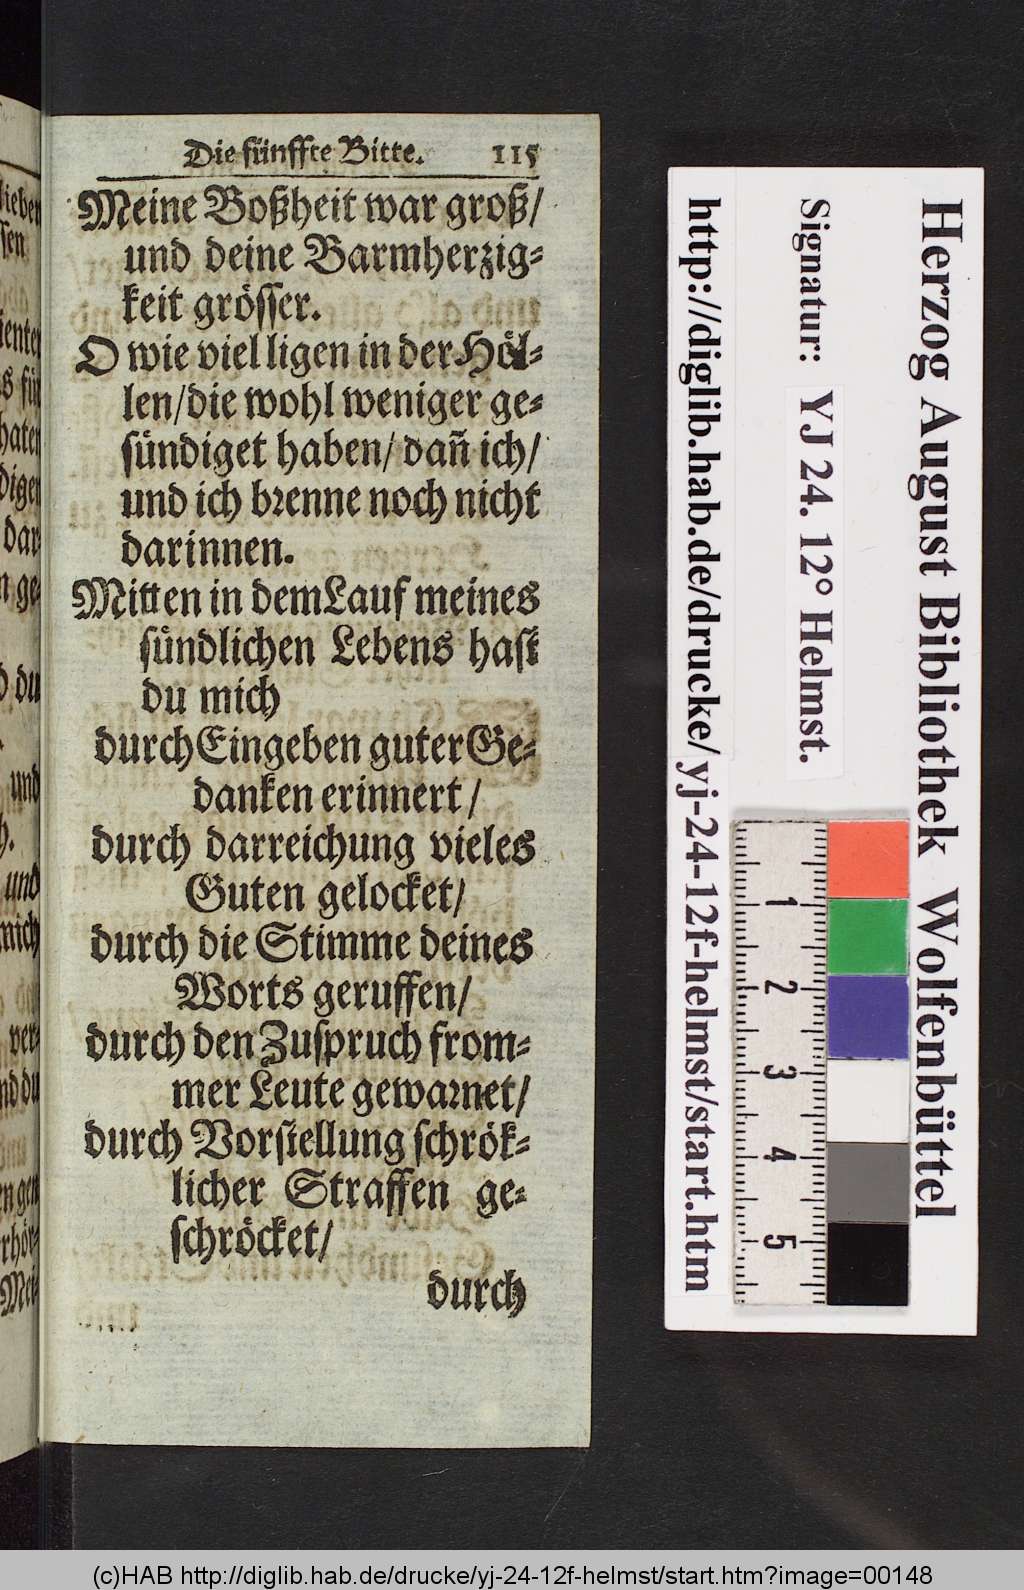 Die fünffte Bitte. 115
Meine Boßheit war groß/
und deine Barmherzig⸗
keit grösser.
O wie viel ligen in der Höl⸗
len/die wohl weniger ge⸗
sündiget haben/ dañ ich/
und ich brenne noch nicht
darinnen.
Mitten in dem Lauf meines
sündlichen Lebens hast
du mich
durch Eingeben guter Ge⸗
danken erinnert/
durch darreichung vieles
Guten gelocket/
durch die Stimme deines
Worts geruffen/
durch den Zuspruch from⸗
mer Leute gewarnet/
durch Vorstellung schrök⸗
licher Straffen ge⸗
schröcket/
durch
Herzog August Bibliothek Wolfenbüttel
Signatur: YJ 24. 12° Helmst.
http://diglib.hab.de/drucke/yj-24-12f-helmst/start.htm
1
2
3
4
5
(c)HAB http://diglib.hab.de/drucke/yj-24-12f-helmst/start.htm?image=00148